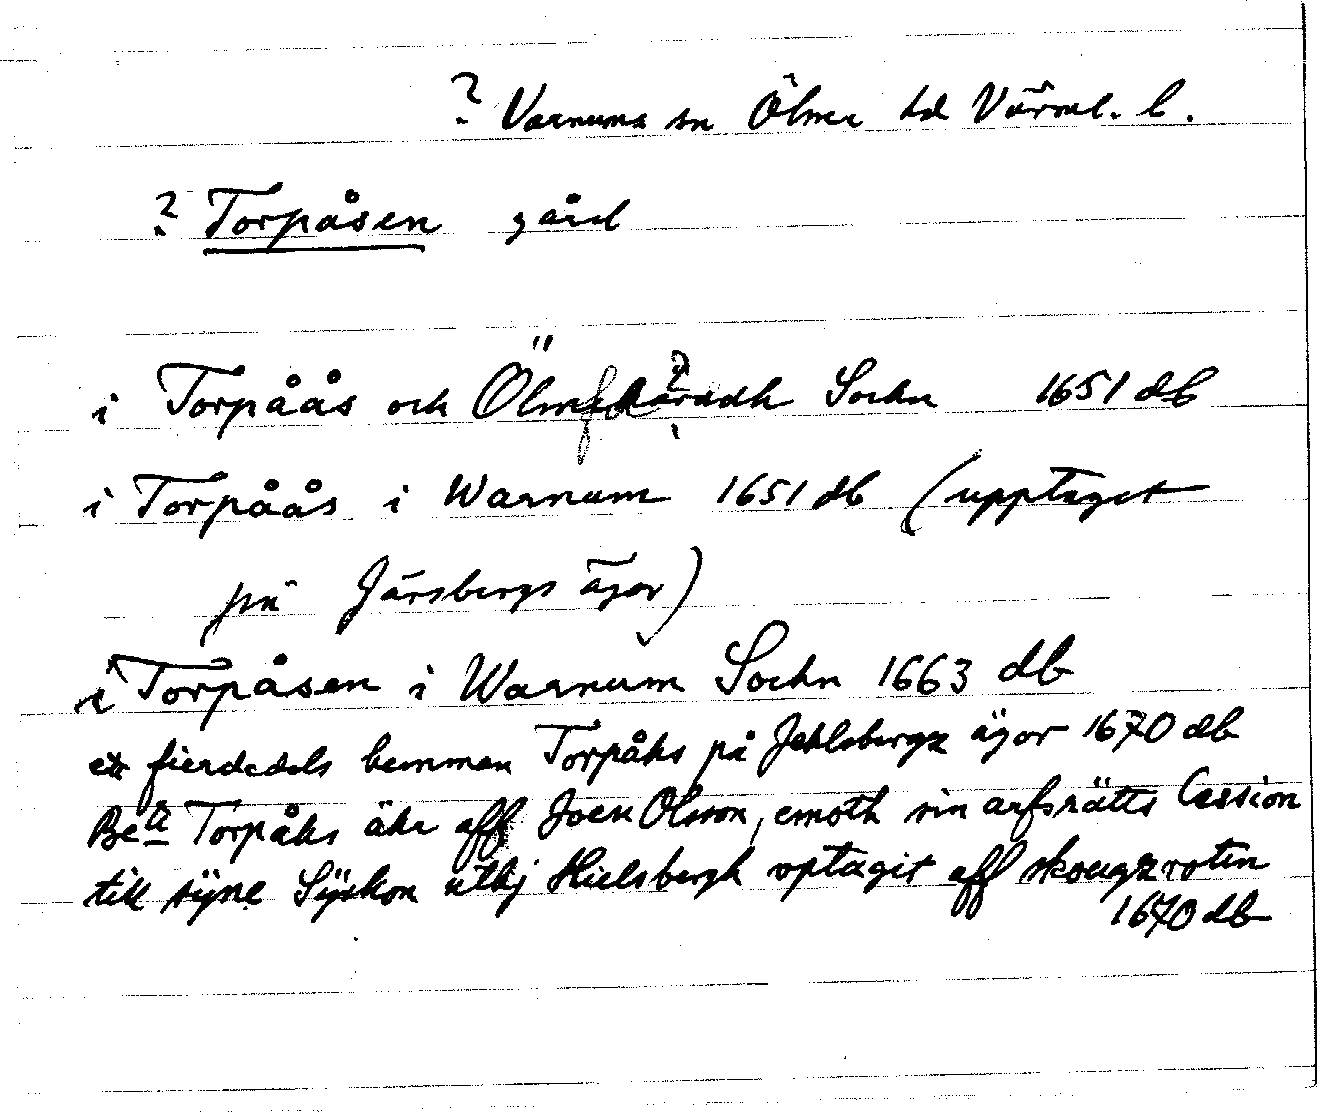 ? Varnums sn Ölme hd Värml. l.
? Torpåsen gård
i Torpåås och Ölm häradh Sochn 1651 db
i Torpåås i Warnum 1651 db (upptaget
på Järsbergs ägor)
i Torpåsen i Warnum Sochn 1663 db
ett fierdedels hemman Torpåhs på Jehlsbergz ägor 1670 db
Be:te Torpåhs ähr aff Joen Olsson, emoth sin arfsrätts Cession
till syne Syskon uthj Hielsbergh optagit aff skougzroten
1670 db